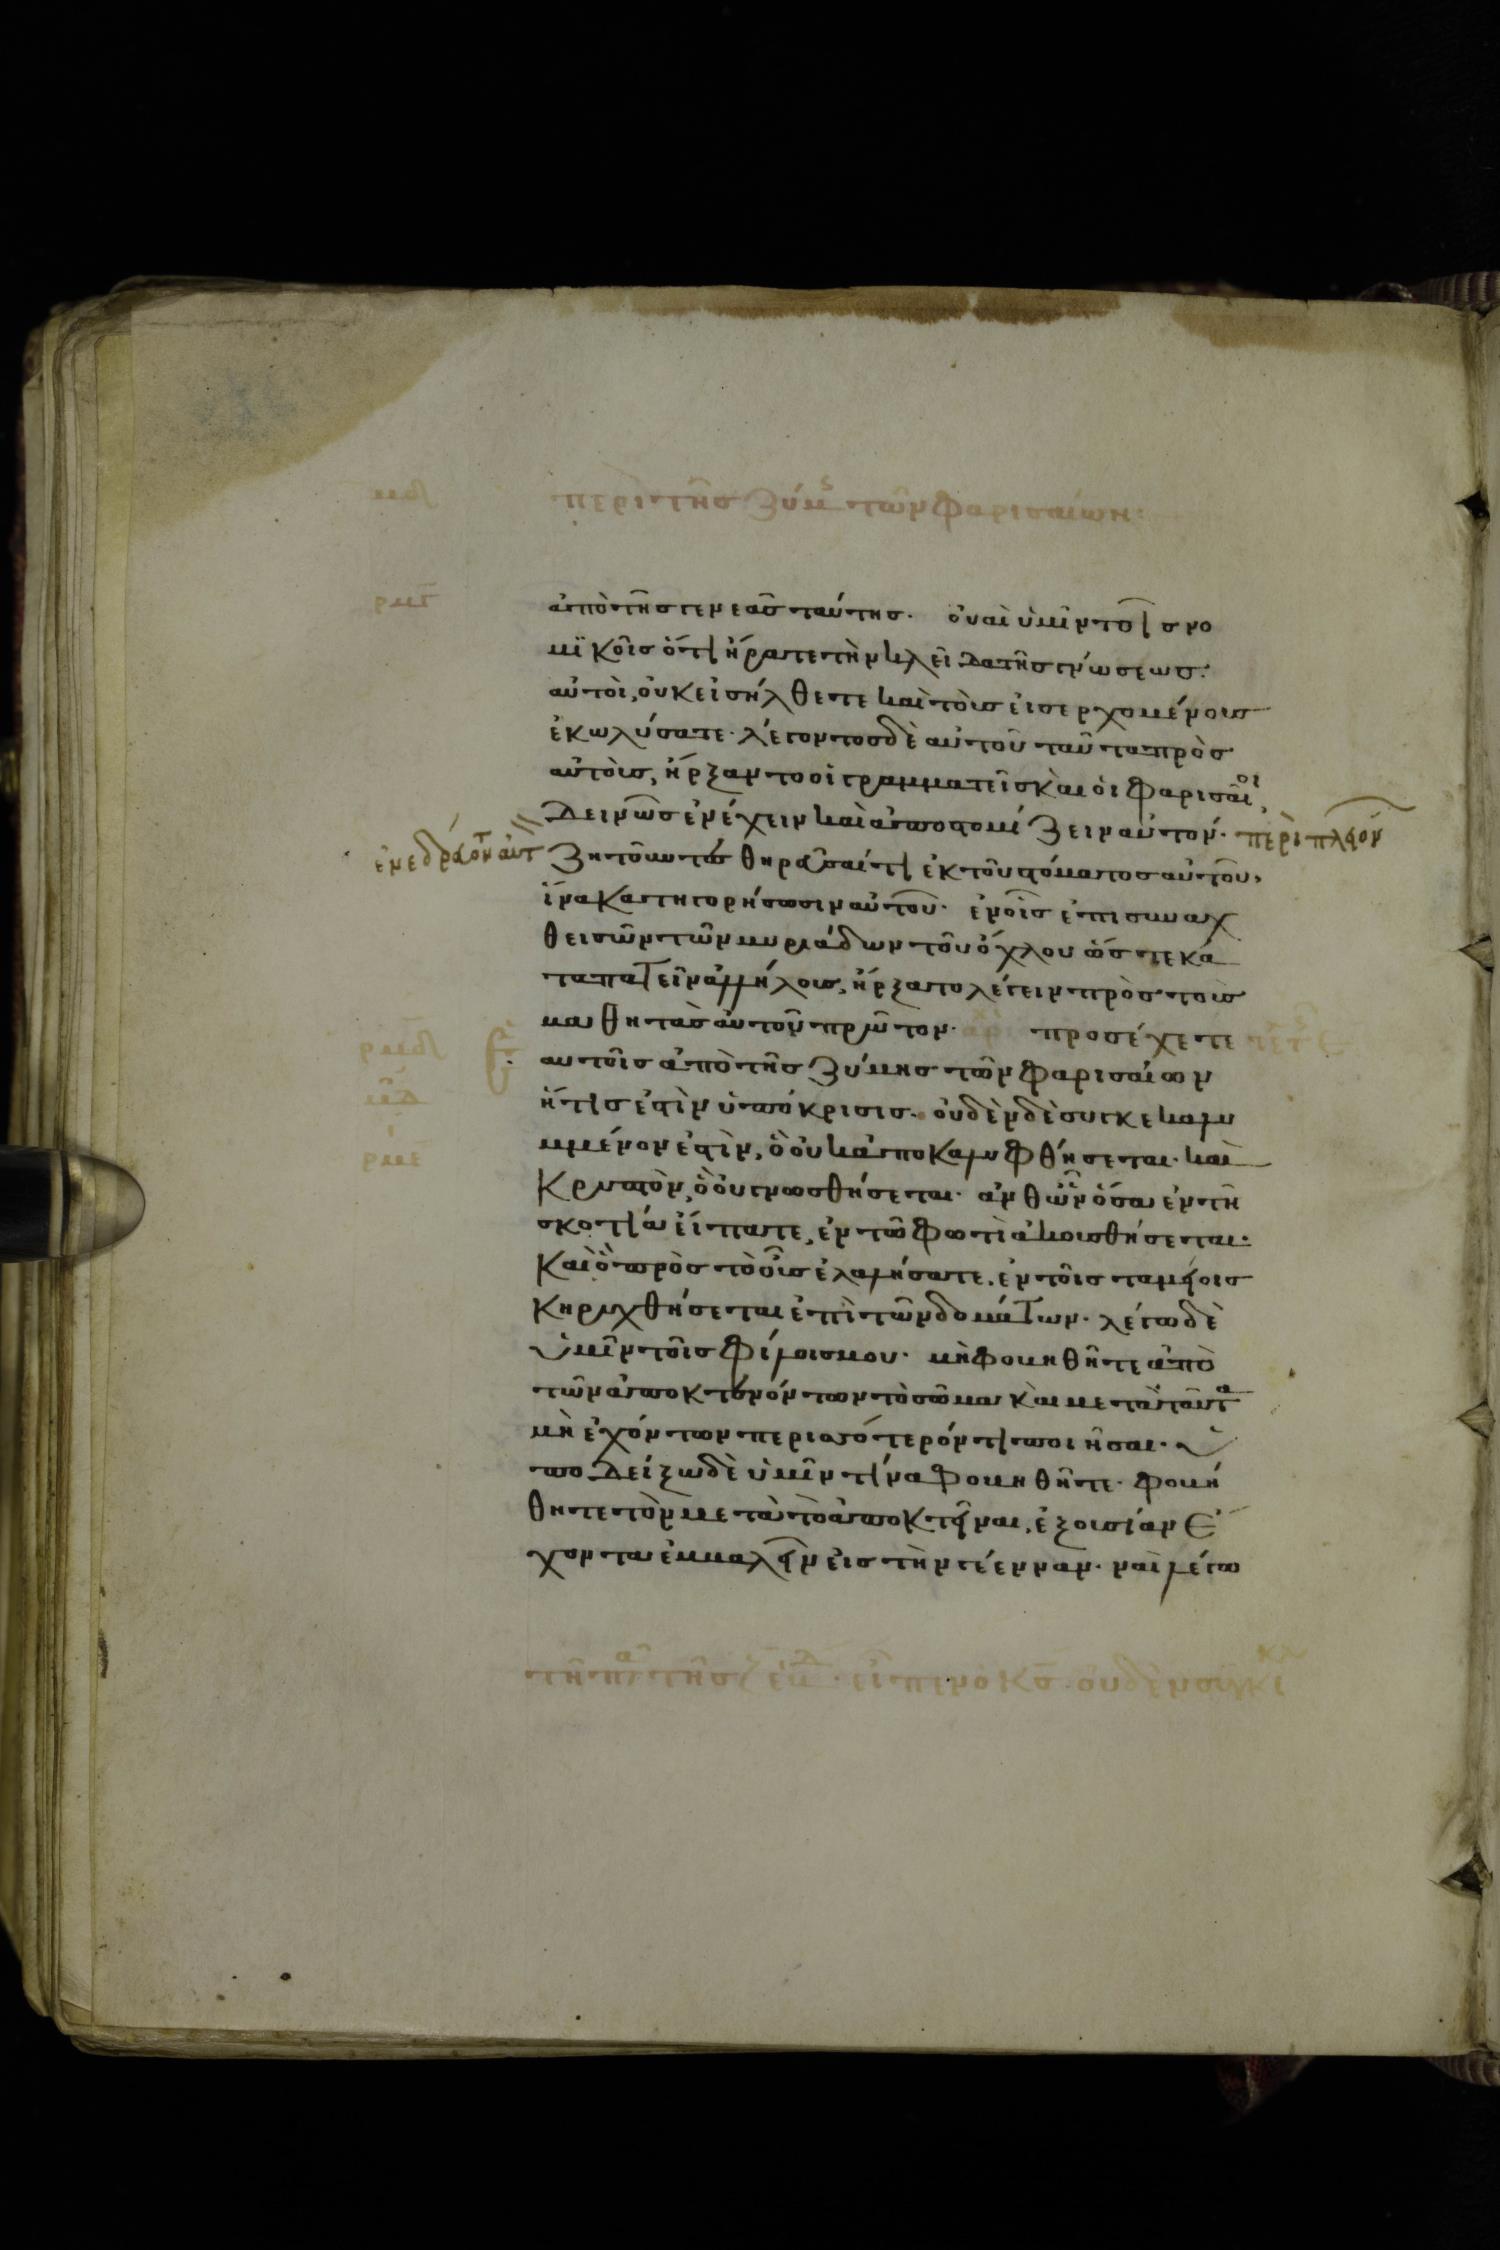 περὶ τῆς ζύμς τῶν φαρισαίων:
ἀπὸ τῆς γενεᾶς ταύτης. οὐαὶ ὑμῖν τοῖς νο
μϊκοῖς ὅτι ἤρατε τὴν κλεῖδα τῆς γνώσεως.
αὐτοὶ, οὐκ εἰσήλθετε καὶ τοὺς εἰσερχομένους
ἐκωλύσατε. λέγοντος δὲ αὐτοῦ ταῦτα πρὸς
αὐτοὺς, ἤρξαντο οἱ γραμματεῖς καὶ οἱ φαρισαῖοι,
δεινῶς ἐνέχειν καὶ ἀποστομίζειν αὐτὸν. περὶ πλειόν
ἐνεδρεύοντ αὐτ ζητοῦντες θηρεῦσαί τι ἐκ τοῦ στόματος αὐτοῦ,
ἵνα κατηγορήσωσιν αὐτοῦ. ἐν οἷς ἐπισυναχ
θεισῶν τῶν μυριάδων τοῦ ὄχλου ὥστε κα
ταπατεῖν ἀλλήλους, ἤρξατο λέγειν πρὸς τοὺς
μαθητὰς αὐτοῦ πρῶτον. ἀρχ προσέχετε
αυτοῖς ἀπὸ τῆς ζύμης τῶν φαρισαίων
ἥτις ἐστὶν ὑπόκρισις. οὐδὲν δὲ συγκεκαλυ
μμένον ἐστὶν, ὃ οὐκ ἀποκαλυφθήσεται. καὶ
κρυπτὸν, ὃ οὐ γνωσθήσεται. ἀνθ ὧν ὅσα ἐν τῇ
σκοτίᾳ εἴπατε, ἐν τῶ φωτὶ ἀκουσθήσεται.
καὶ ὃ πρὸς τὸ οὖς ἐλαλήσατε, ἐν τοῖς ταμείοις
κηρυχθήσεται ἐπὶ τῶν δομάτων. λέγω δὲ
ὑμῖν τοῖς φίλοις μου. μὴ φοβηθῆτε ἀπὸ
τῶν ἀποκτενόντων τὸ σῶμα καὶ μετὰ ταῦτα
μὴ ἐχόντων περισσότερόν τι ποιῆσαι. ὑ
ποδείξω δὲ ὑμῖν τίνα φοβηθῆτε. φοβή
θητε τὸν μετὰ τὸ ἀποκτεῖναι, ἐξουσίαν ἔ
χοντα ἐμβαλεῖν εἰς τὴν γέενναν. ναὶ λέγω
εἶπεν ὁ κς. οὐδὲν συγκε